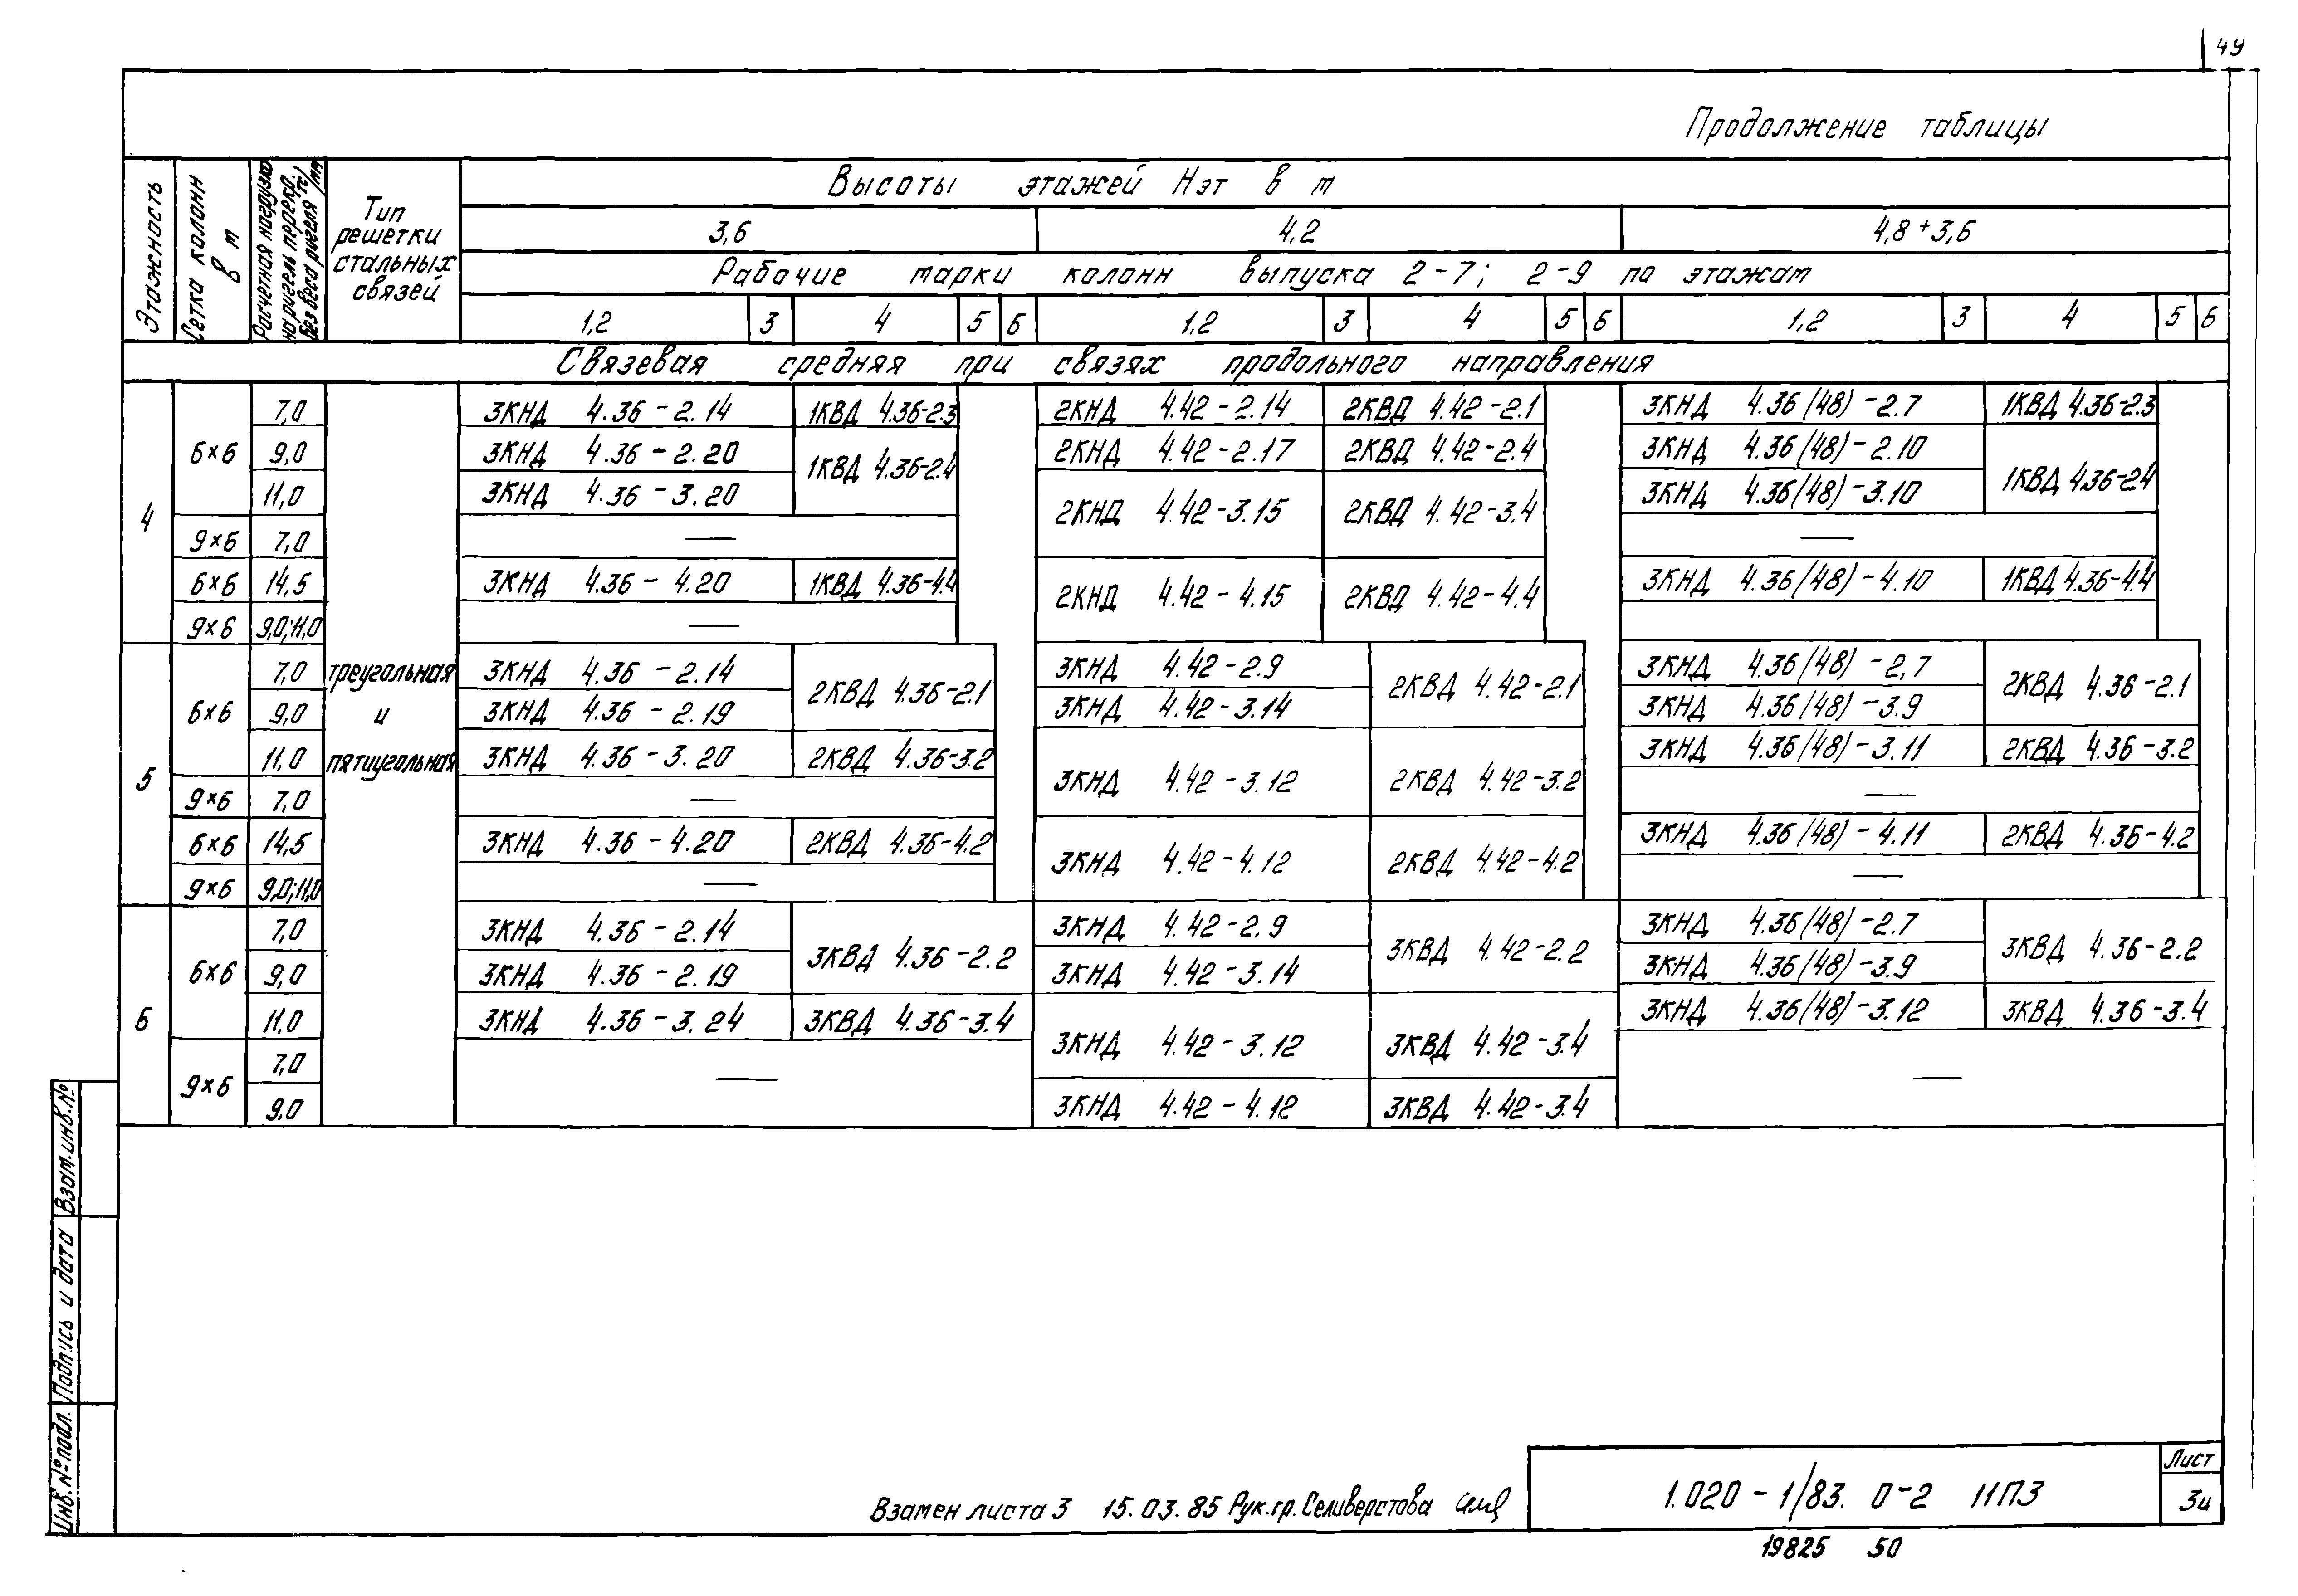 49
Продолжение таблицы
Этажность
Сетка колонн в м
Расчетная нагрузка на ригель перекр. без веса ригеля тс/мм
Тип решетки стальных связей
Высоты этажей Нэт в м
3,6 4,2 4,8+3,6
Рабочие марки колонн выпуска 2-7; 2-9 по этажам
1,2 3 4 5 6 1,2 3 4 5 6 1,2 3 4 5 6
Связевая средняя при связях продольного направления
4
6×6 7,0 3КНД 4.36-2.14 1КВД 4.36-2.3 2КНД 4.42-2.14 2КВД 4.42-2.1 3КНД 4.36(48)-2.7 1КВД 4.36-2.3
9,0 3КНД 4.36-2.20 1КВД 4.36-2.4 2КНД 4.42-2.17 2КВД 4.42-2.4 3КНД 4.36(48)-2.10 1КВД 4.36-2.4
11,0 3КНД 4.36-3.20 2КНД 4.42-3.15 2КВД 4.42-3.4 3КНД 4.36(48)-3.10
9×6 7,0 — —
6×6 14,5 3КНД 4.36-4.20 1КВД 4.36-4.4 2КНД 4.42-4.15 2КВД 4.42-4.4 3КНД 4.36(48)-4.10 1КВД 4.36-4.4
9×6 9,0;11,0 —
треугольная
и
пятиугольная
5
6×6 7,0 3КНД 4.36-2.14 2КВД 4.36-2.1 3КНД 4.42-2.9 2КВД 4.42-2.1 3КНД 4.36(48)-2,7 2КВД 4.36-2.1
9,0 3КНД 4.36-2.19 3КНД 4.42-3.14 3КНД 4.36(48)-3.9
11,0 3КНД 4.36-3.20 2КВД 4.36-3.2 3КНД 4.42-3.12 2КВД 4.42-3.2 3КНД 4.36(48)-3.11 2КВД 4.36-3.2
9×6 7,0 — —
6×6 14,5 3КНД 4.36-4.20 2КВД 4.36-4.2 3КНД 4.42-4.12 2КВД 4.42-4.2 3КНД 4.36(48)-4.11 2КВД 4.36-4.2
9×6 9,0;11,0 — —
6
6×6 7,0 3КНД 4.36-2.14 3КВД 4.36-2.2 3КНД 4.42-2.9 3КВД 4.42-2.2 3КНД 4.36(48)-2.7 3КВД 4.36-2.2
9,0 3КНД 4.36-2.19 3КНД 4.42-3.14 3КНД 4.36(48)-3.9
11,0 3КНД 4.36-3.24 3КВД 4.36-3.4 3КНД 4.42-3.12 3КВД 4.42-3.4 3КНД 4.36(48)-3.12 3КВД 4.36-3.4
9×6 7,0 — —
9,0 3КНД 4.42-4.12 3КВД 4.42-3.4
Взам.инв.№
Подпись и дата
Инв.№подл.
Взамен листа 3 15.03.85 Рук.гр.Селиверстова
1.020-1/83. 0-2 11ПЗ
Лист
3и
19825 50